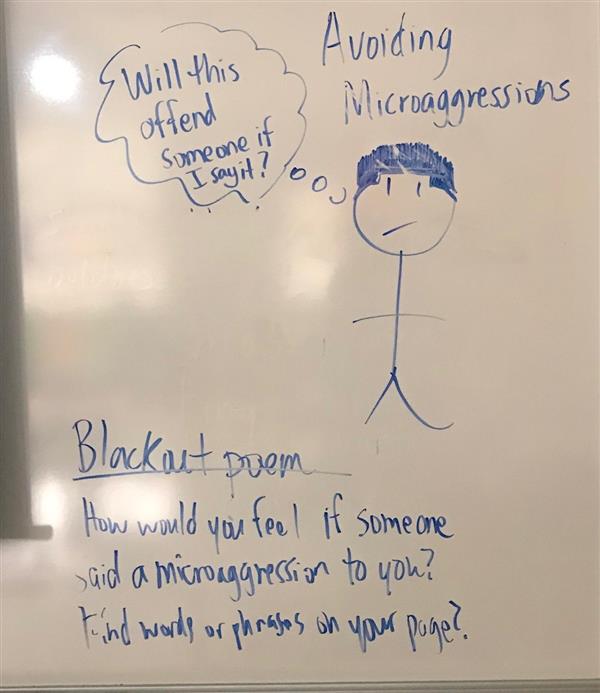 Avoiding
Microaggressions
Will this
offend
someone if
I say it?
Blackout poem
How would you feel if someone
said a microaggression to you?
Find words or phrases on your page?